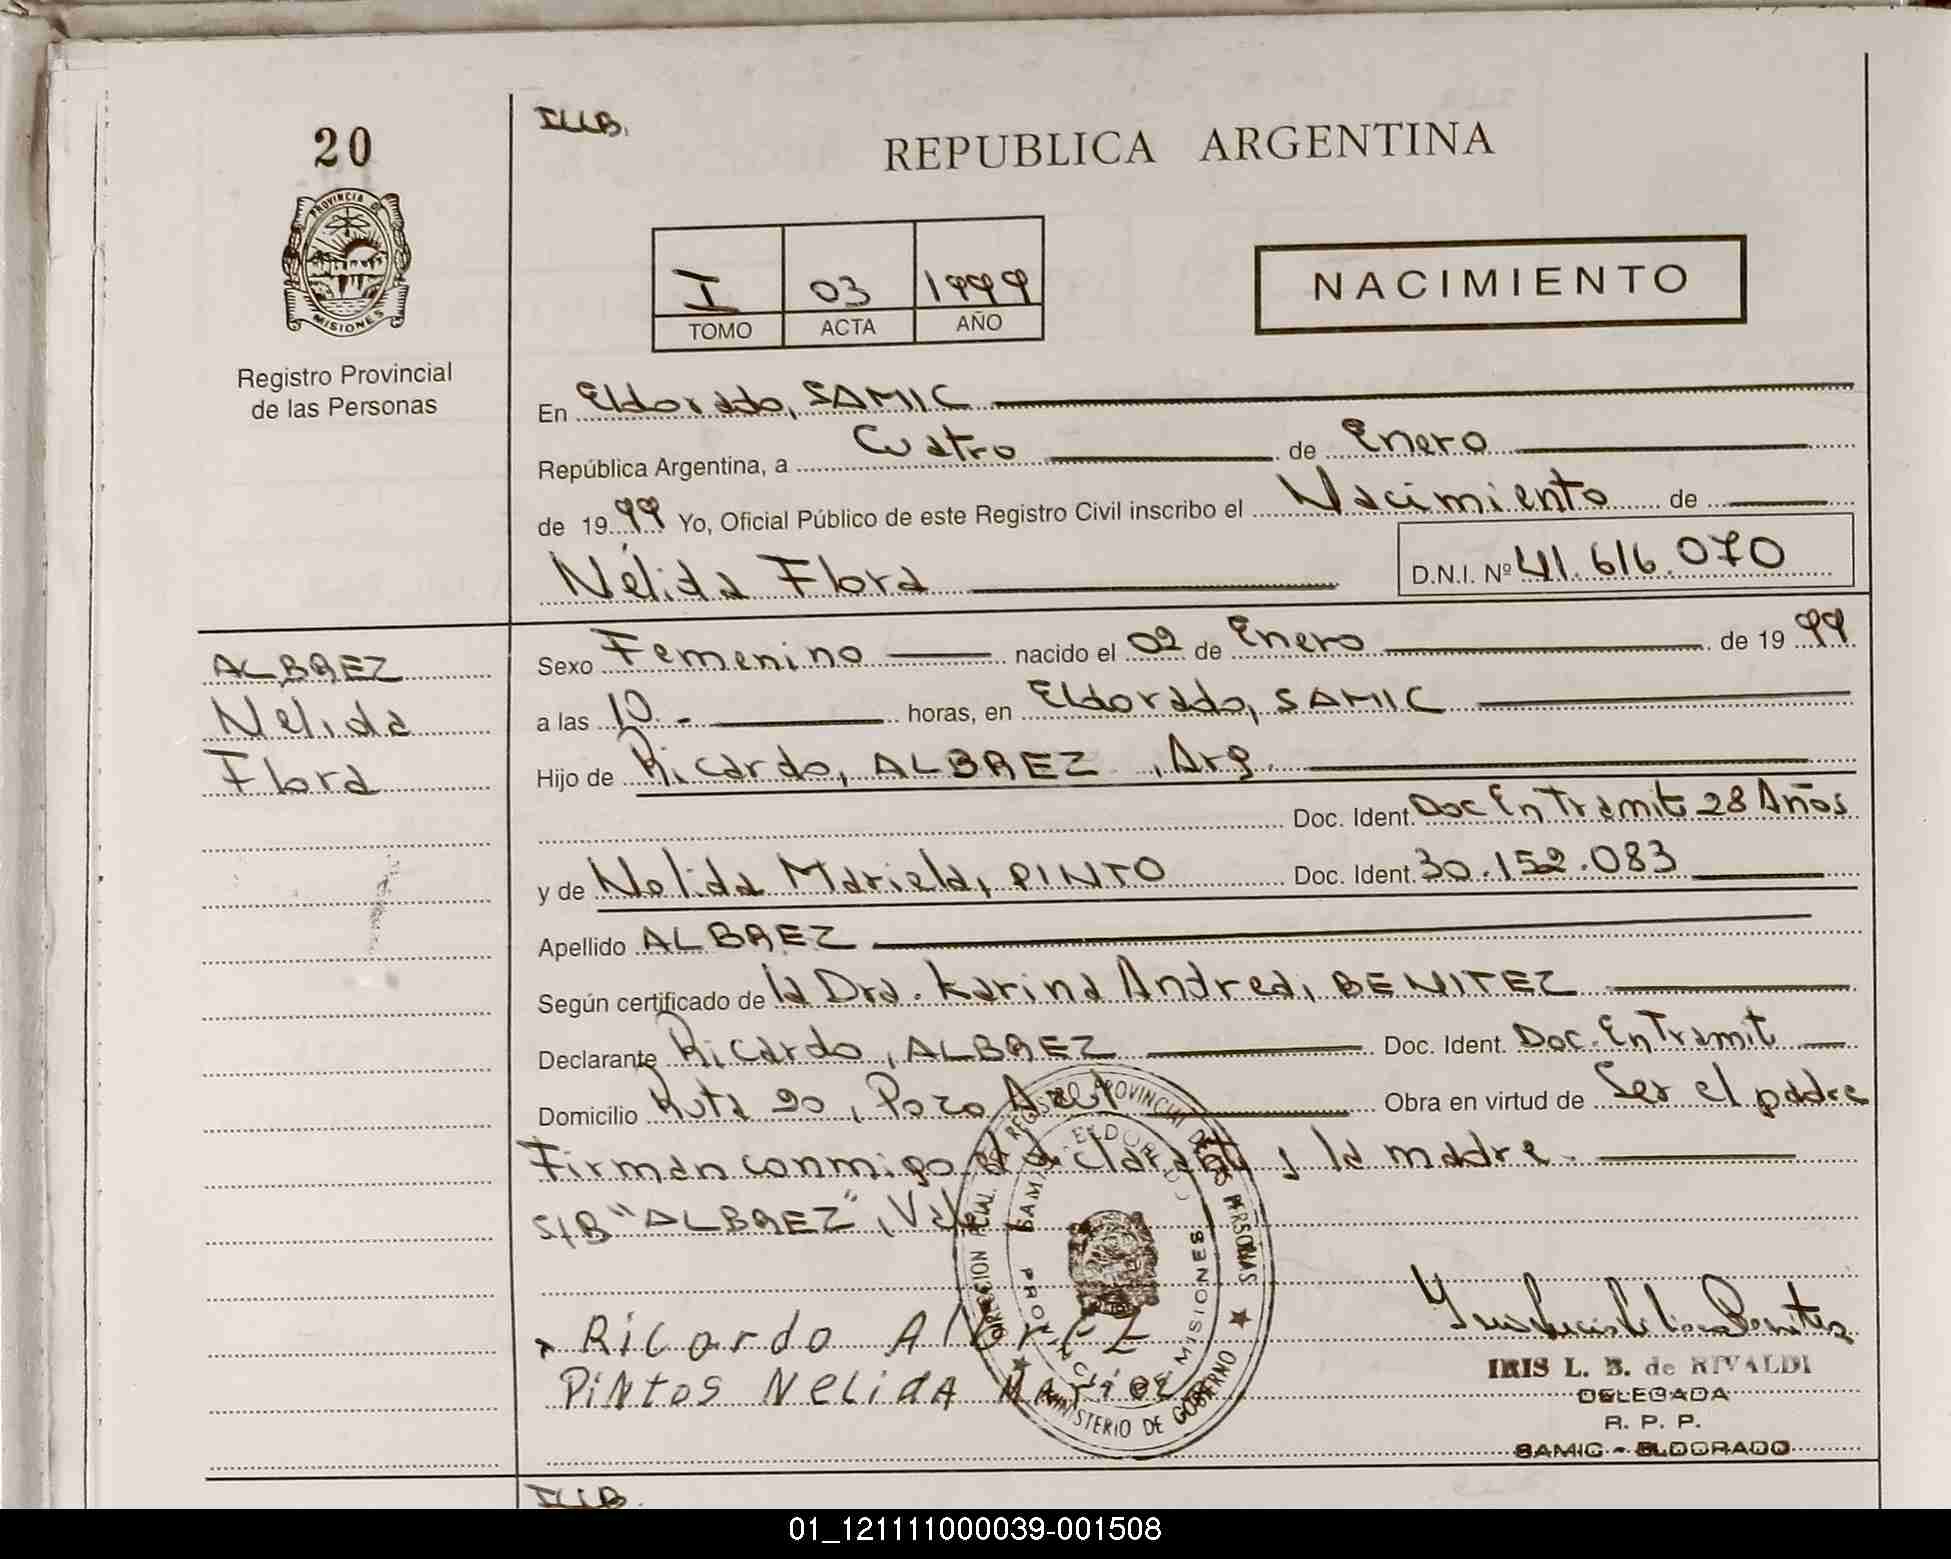 20
ILLB.
REPUBLICA ARGENTINA
PROVINCIA DE MISIONES
I 03 1999
TOMO ACTA AÑO
NACIMIENTO
Registro Provincial
de las Personas
En Eldorado, SAMIC
República Argentina, a Cuatro de Enero
de 1999 Yo, Oficial Público de este Registro Civil inscribo el Nacimiento de
Nélida Flora D.N.I. Nº 41.616.070
ALBREZ
Nelida
Flora
Sexo Femenino nacido el 02 de Enero de 1999
a las 10.- horas, en Eldorado, SAMIC
Hijo de Ricardo, ALBREZ, Arg.
Doc. Ident. Doc En Tramit 28 Años
y de Nelida Mariela, PINTO Doc. Ident. 30.152.083
Apellido ALBREZ
Según certificado de la Dra. Karina Andrea, BENITEZ
Declarante Ricardo, ALBREZ Doc. Ident. Doc. En Tramit
Domicilio Ruta 20, Pozo Azul Obra en virtud de Ser el padre
Firman conmigo el declarante y la madre.
S/B "ALBREZ", Vale
Ricardo Albrez
PiNtos NELidA
REGISTRO PROVINCIAL DE LAS PERSONAS
ELDORADO
PROVINCIA DE MISIONES
MINISTERIO DE GOBIERNO
IRIS L. B. de RIVALDI
DELEGADA
R. P. P.
SAMIC - ELDORADO
ILLB.
01_121111000039-001508